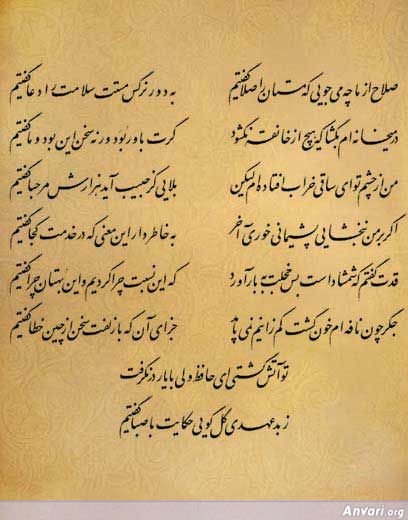 صلاح از ما چه می جویی که مستان را صلا گفتیم به دور نرگس مستت سلامت را دعا گفتیم
در میخانه ام بگشا که هیچ از خانقه نگشود گرت باور بود ور نه سخن این بود و ما گفتیم
من از چشم تو ای ساقی خراب افتاده ام لیکن بلایی کز حبیب آید هزارش مرحبا گفتیم
اگر بر من نبخشایی پشیمانی خوری آخر به خاطر دار این معنی که در خدمت کجا گفتیم
قدت گفتم که شمشاد است بس خجلت به بار آورد که این نسبت چرا کردیم و این بهتان چرا گفتیم
جگر چون نافه ام خون گشت کم زینم نمی باید جزای آن که با زلفت سخن از چین خطا گفتیم
تو آتش گشتی ای حافظ ولی با یار در نگرفت
ز بد عهدی گل گویی حکایت با صبا گفتیم
Anvari.org